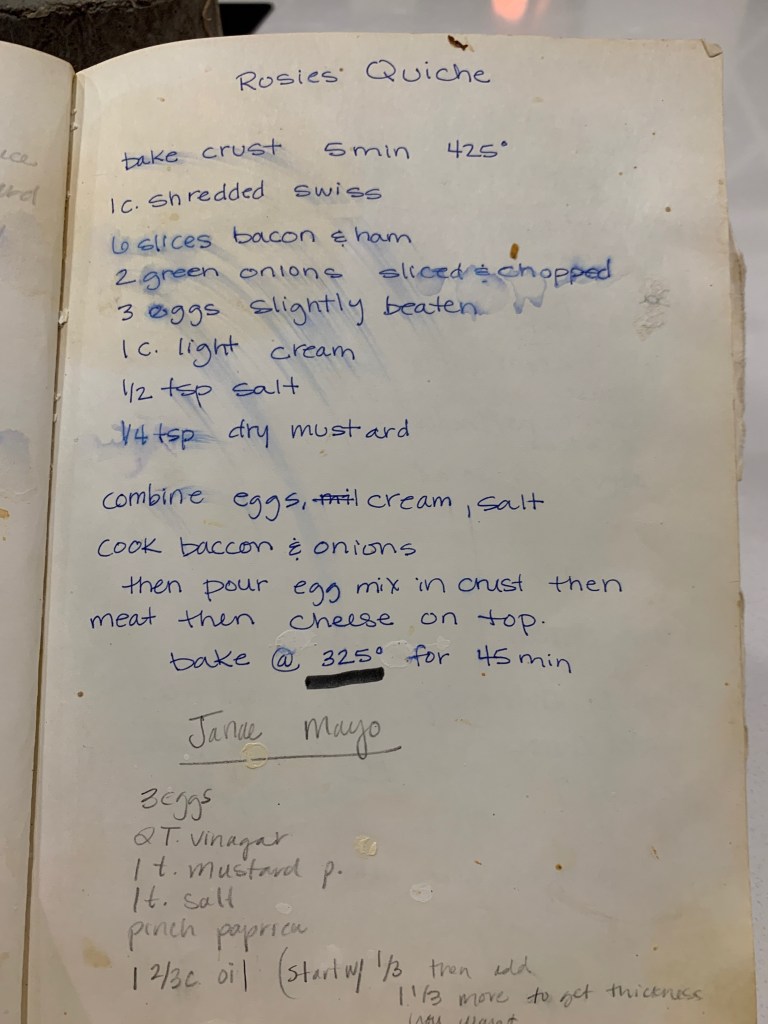 ice
Rosies' Quiche
bake crust 5min 425°
1c. shredded swiss
6 slices bacon & ham
2 green onions sliced & chopped
3 eggs slightly beaten
1 c. light cream
1/2 tsp salt
1/4 tsp dry mustard
combine eggs, mil cream, salt
cook baccon & onions
then pour egg mix in crust then
meat then cheese on top.
bake @ 325° for 45min
Janae Mayo
3 eggs
2 T. vinagar
1 t. mustard p.
1 t. salt
pinch paprica
1 2/3c oil (start w/ 1/3 then add
1 1/3 more to get thickness
you want